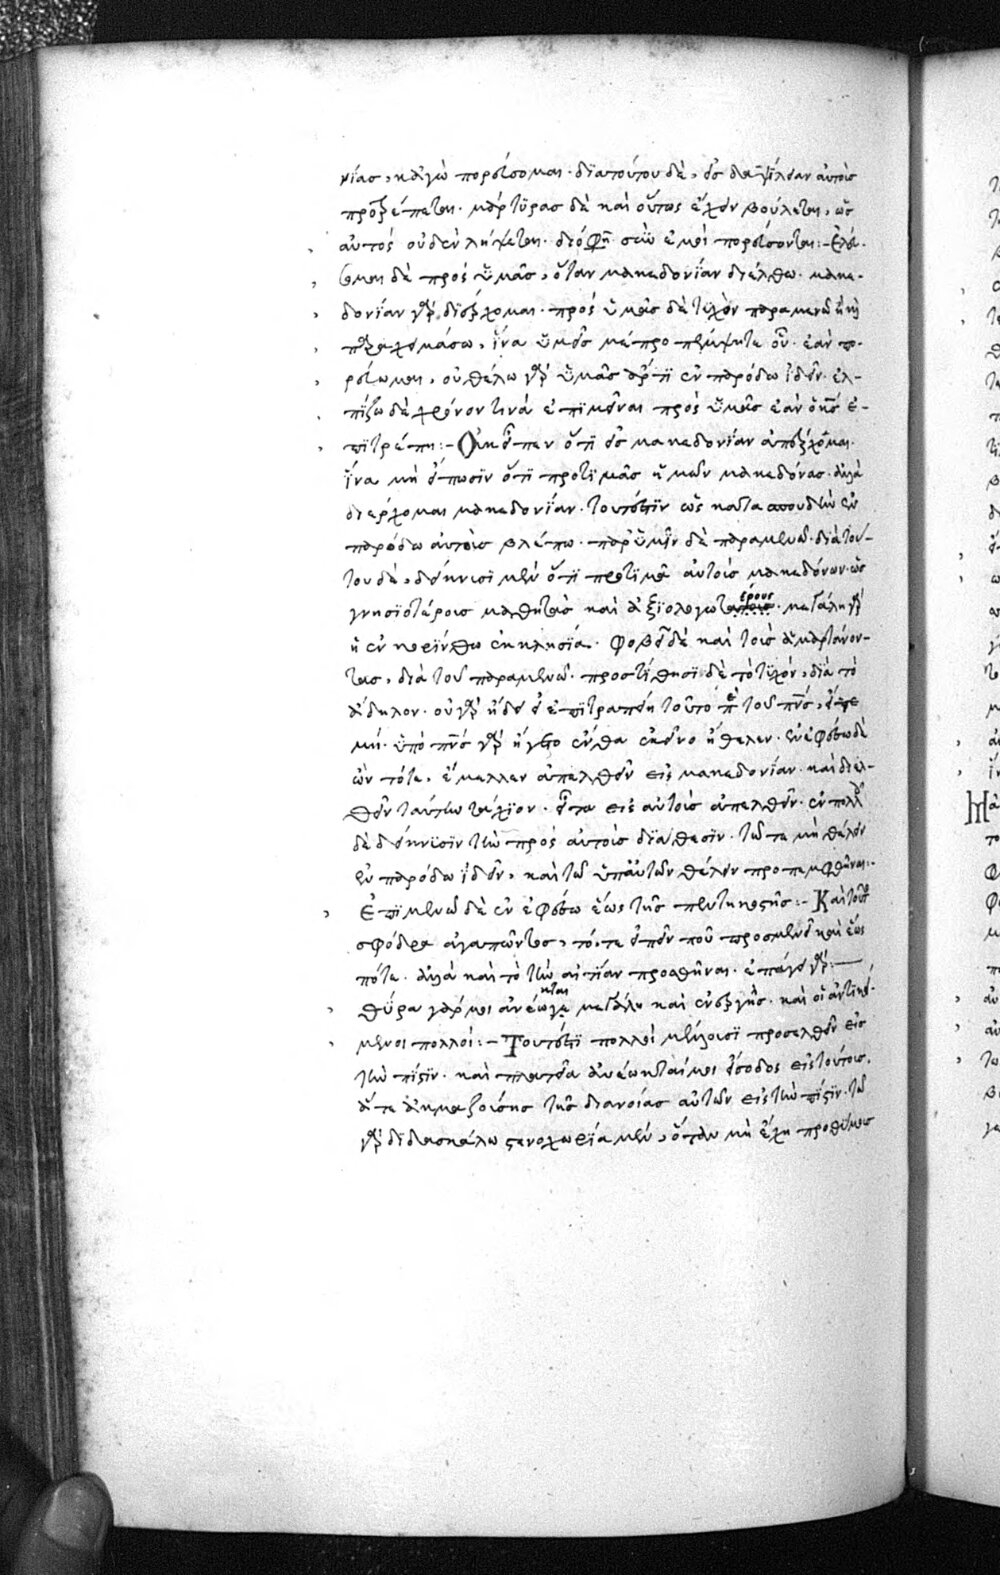 νίας, κἀγὼ πορεύσομαι. διὰ τούτου δὲ, εἰς δαψίλειαν αὐτοὺς
προτρέπεται. μάρτυρας δὲ καὶ οὕτως ἔχειν βούλεται, ὡς
αὐτὸς οὐδὲν λήψεται. διό φησι σὺν ἐμοὶ πορεύσονται:- Ἐλεύ-
σομαι δὲ πρὸς ὑμᾶς, ὅταν μακεδονίαν διέλθω. μακε-
δονίαν γὰρ διέρχομαι. πρὸς ὑμᾶς δὲ τυχὸν παραμενῶ ἢ καὶ
παραχειμάσω, ἵνα ὑμεῖς με προπέμψητε οὗ ἐὰν πο-
ρεύωμαι, οὐ θέλω γὰρ ὑμᾶς ἄρτι ἐν παρόδω ἰδεῖν. ἐλ-
πίζω δὲ χρόνον τινὰ ἐπιμεῖναι πρὸς ὑμᾶς ἐὰν ὁ κς ἐ-
πιτρέπη:- Οὐκ εἶπεν ὅτι εἰς μακεδονίαν ἀπέρχομαι.
ἵνα μὴ εἴπωσιν ὅτι προτιμᾶς ἡμῶν μακεδόνας. ἀλλὰ
διέρχομαι μακεδονίαν. τουτέστιν ὡς κατὰ σπουδὴν ἐν
παρόδω αὐτοὺς βλέπω. παρ' ὑμῖν δὲ παραμενῶ. διὰ τού-
του δὲ, δείκνυσι μὲν ὅτι προτιμᾶ αὐτοὺς μακεδόνων. ὡς
γνησιοτάρους μαθητὰς καὶ ἀξιολογωτέρους. μεγάλη γὰρ
ἡ ἐν κορίνθω ἐκκλησία. φοβεῖ δὲ καὶ τοὺς ἁμαρτάνον-
τας, διὰ τοῦ παραμενῶ. προστίθησι δὲ τὸ τυχὸν, διὰ τὸ
ἄδηλον. οὐ γὰρ ἤδει εἰ ἐπιτραπείη τοῦτο παρὰ τοῦ πνς, εἴτε
μή. ὑπὸ πνς γὰρ ἤγετο ἔνθα ἐκεῖνο ἤθελεν. ἐν ἐφέσω δὲ
ὢν τότε, ἔμελλεν ἀπελθεῖν εἰς μακεδονίαν. καὶ διελ-
θεῖν ταύτην τάχιον. εἶτα εἰς αὐτοὺς ἀπελθεῖν. ἐν πολλοῖς
δὲ δείκνυσιν τὴν πρὸς αὐτοὺς διάθεσιν. τῶ τε μὴ θέλειν
ἐν παρόδω ἰδεῖν, καὶ τῶ ὑπ' αὐτῶν θέλειν προπεμφθῆναι.
Ἐπιμενῶ δὲ ἐν ἐφέσω ἕως τῆς πεντηκοστῆς:- Καὶ τοῦτο
σφόδρα ἀγαπῶντος, τό, τε εἰπεῖν ποῦ προσμενεῖ καὶ ἕως
πότε. ἀλλὰ καὶ τὸ τὴν αἰτίαν προσθῆναι. ἐπάγει γάρ:-
θύρα γάρ μοι ἀνέωγε μεγάλη καὶ ἐνεργὴς. καὶ οἱ ἀντικεί-
μενοι πολλοί:- Τουτέστι πολλοὶ μέλλουσι προσελθεῖν εἰς
τὴν πίστιν. καὶ πλατεῖα ἀνέωκταί μοι εἴσοδος εἰς τούτους.
ἅτε ἀκμαζούσης τῆς διανοίας αὐτῶν εἰς τὴν πίστιν. τῶ
γὰρ διδασκάλω στενοχωρία μὲν, ὅταν μὴ ἔχη προθύμους